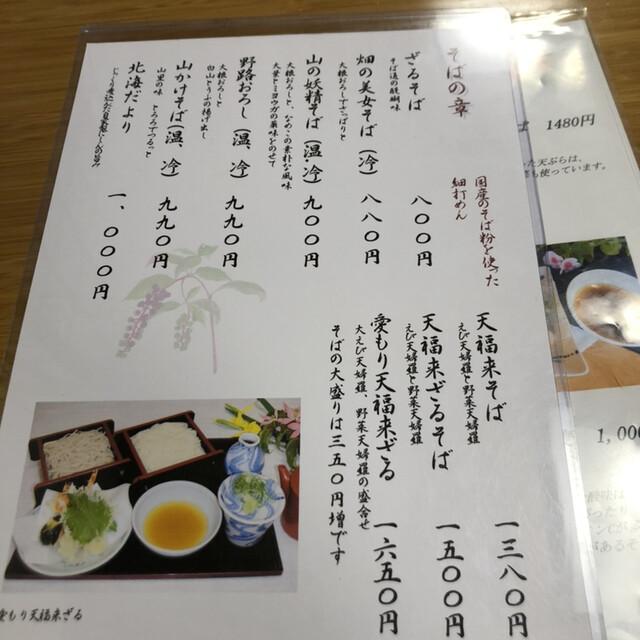 そばの章
国産のそば粉を使った
細打めん
ざるそば
そば通の醍醐味
八〇〇円
畑の美女そば（冷）
大根おろしでさっぱりと
八八〇円
山の妖精そば（温、冷）
大根おろしと、なめこの素朴な風味
大葉とミョウガの薬味をのせて
九〇〇円
野路おろし（温、冷）
大根おろし、
九九〇円
山かけそば（温、冷）
山里の味 とろろでつるっと
九九〇円
北海だより
一、〇〇〇円
天福来そば
えび天婦羅と野菜天婦羅
一三八〇円
天福来ざるそば
えび天婦羅と野菜天婦羅
一五〇〇円
愛もり天福来ざる
大えび天婦羅、野菜天婦羅の盛合せ
一六五〇円
そばの大盛りは三五〇円増です
愛もり天福来ざる
1480円
った天ぷらは、
も使っています。
1,000